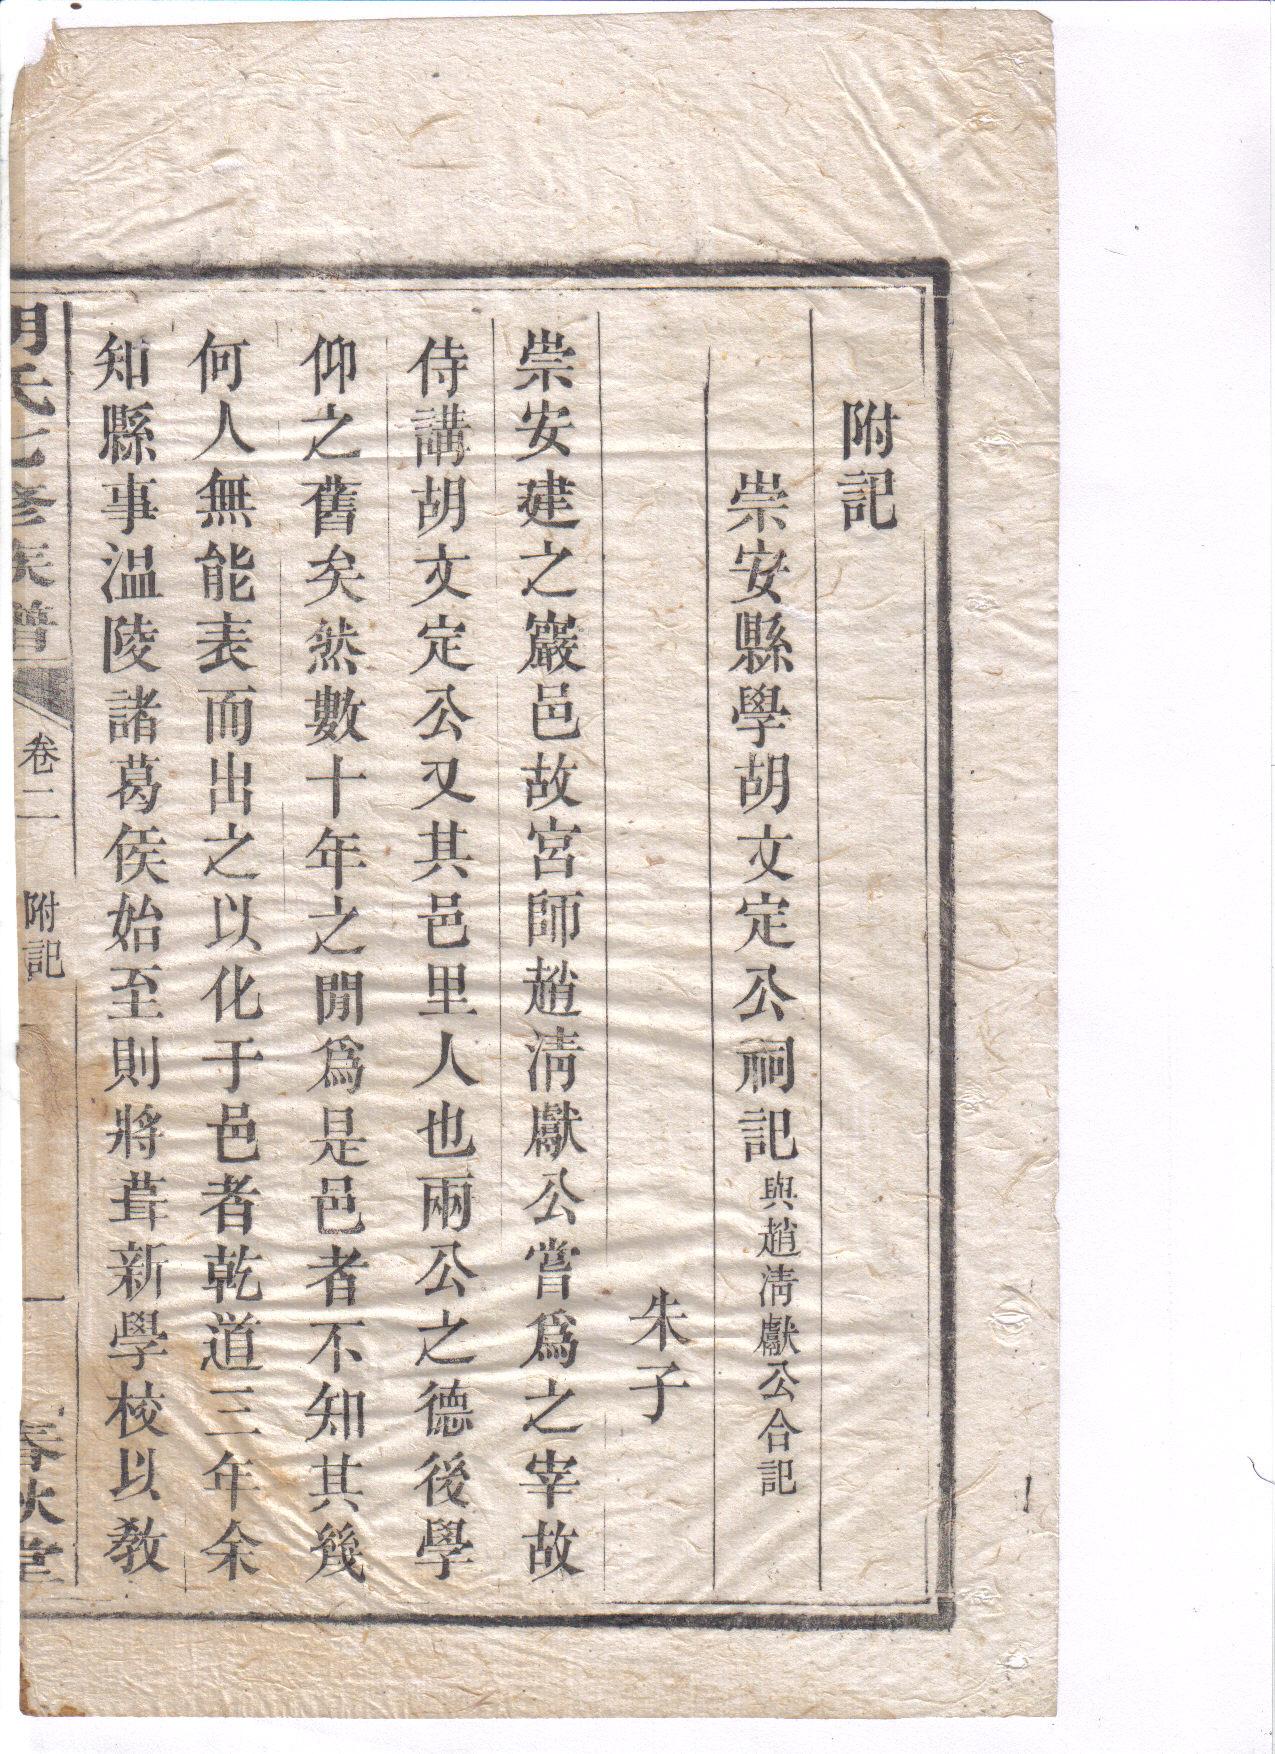 附記
崇安縣學胡文定公祠記與趙清獻公合記
朱子
崇安建之巖邑故宮師趙清獻公嘗爲之宰故
侍講胡文定公又其邑里人也兩公之德後學
仰之舊矣然數十年之閒爲是邑者不知其幾
何人無能表而出之以化于邑者乾道三年余
知縣事溫陵諸葛侯始至則將葺新學校以教
胡氏七修族譜
卷二
附記
一
春秋堂